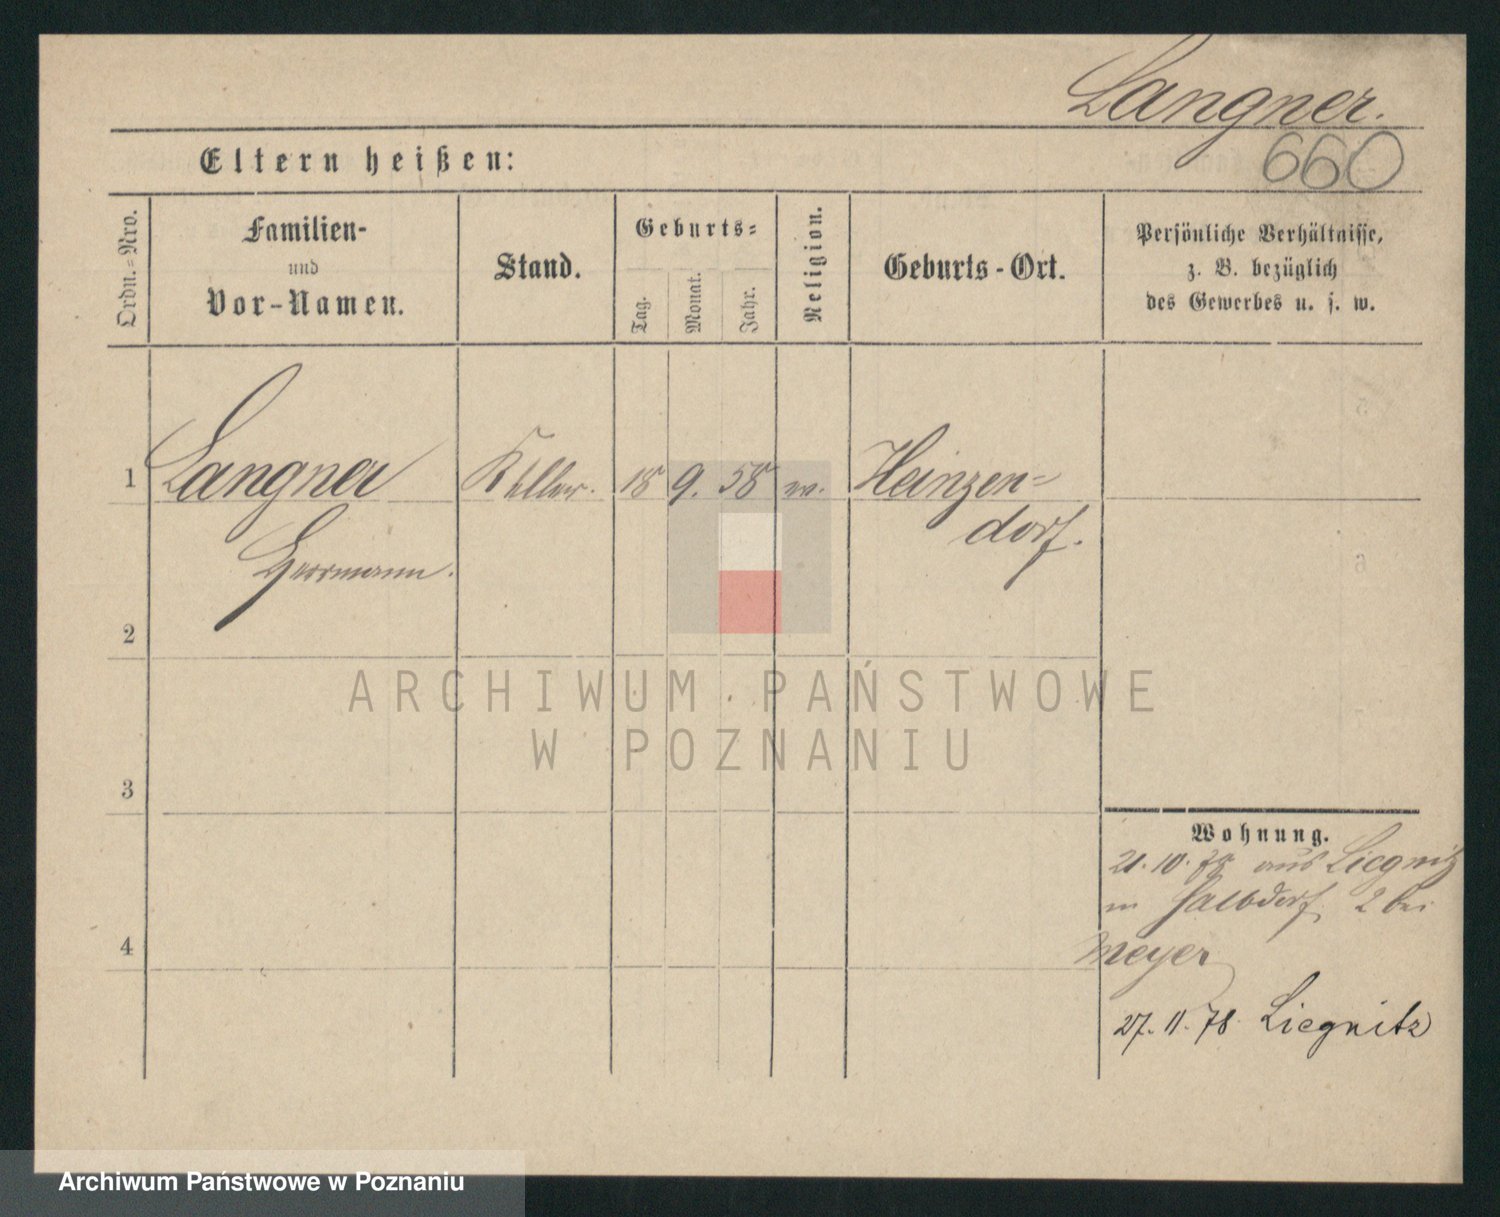 Langner.
660
Eltern heißen:
Ordn.=Nro.
Familien-
und
Vor-Namen.
Stand.
Geburts=
Tag.
Monat.
Jahr.
Religion.
Geburts-Ort.
Persönliche Verhältnisse,
z. B. bezüglich
des Gewerbes u. s. w.
1 Langner 18 9. 58 Heinzen=
Herrmann. dorf.
2
3
4
Wohnung.
21. 10. 78 aus Liegnitz
in Halbdorf 2 bei
Meyer
27. 11. 78 Liegnitz
ARCHIWUM PAŃSTWOWE
W POZNANIU
Archiwum Państwowe w Poznaniu